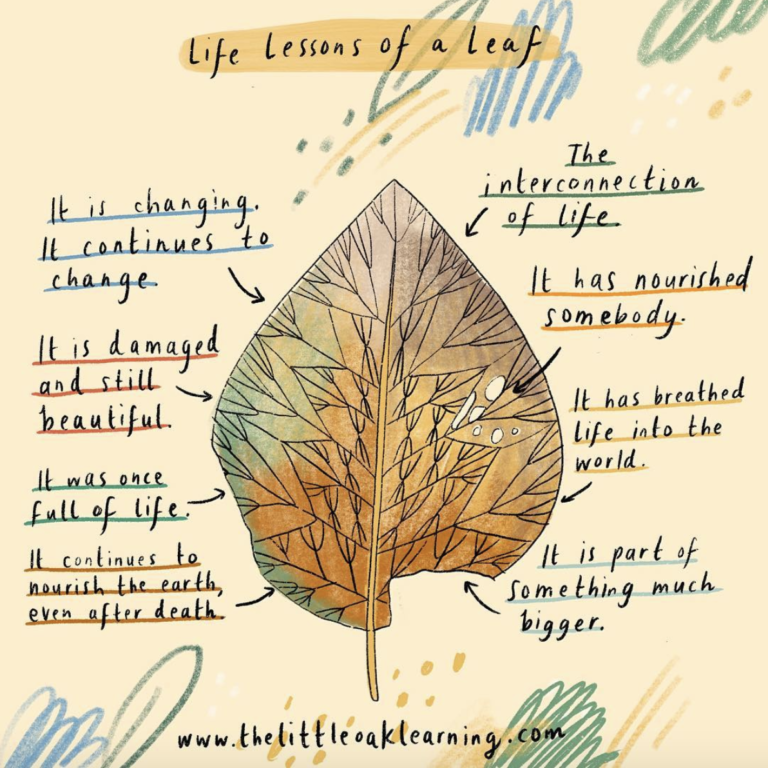 Life Lessons of a Leaf
It is changing.
It continues to
change.
It is damaged
and still
beautiful.
It was once
full of life.
It continues to
nourish the earth,
even after death.
The
interconnection
of life.
It has nourished
somebody.
It has breathed
life into the
world.
It is part of
something much
bigger.
www.thelittleoaklearning.com